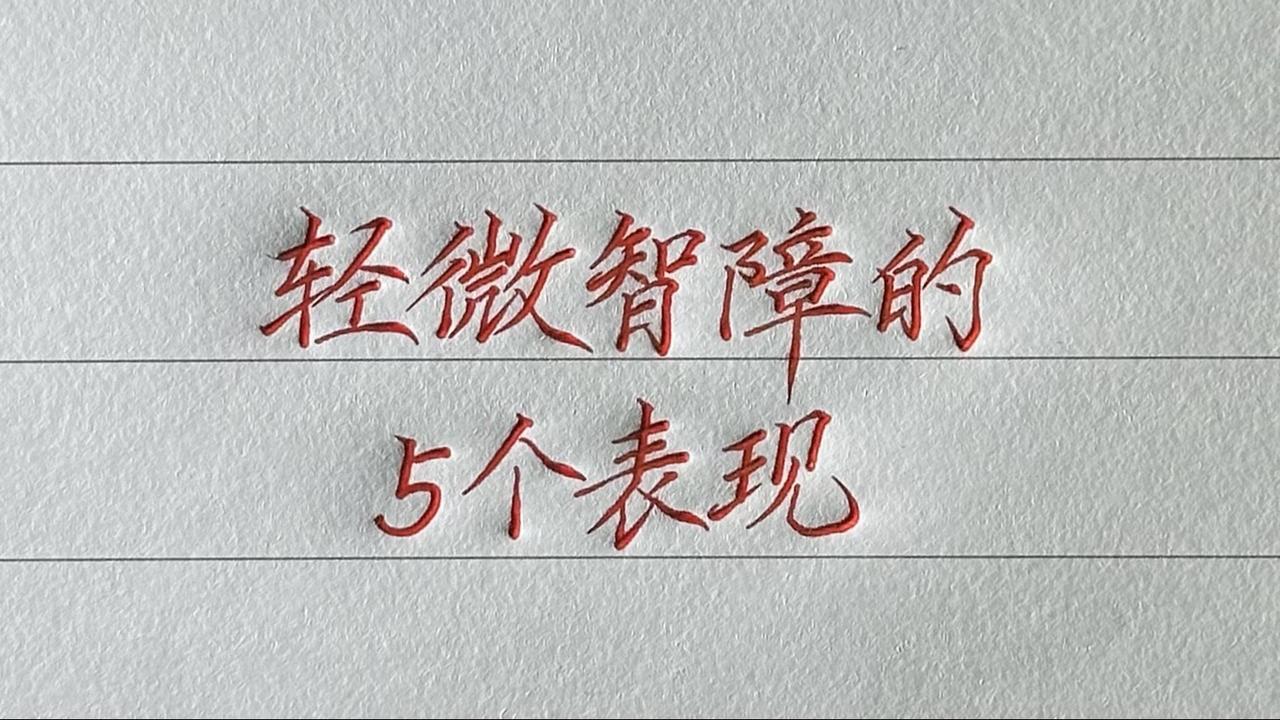 轻微智障的
5个表现